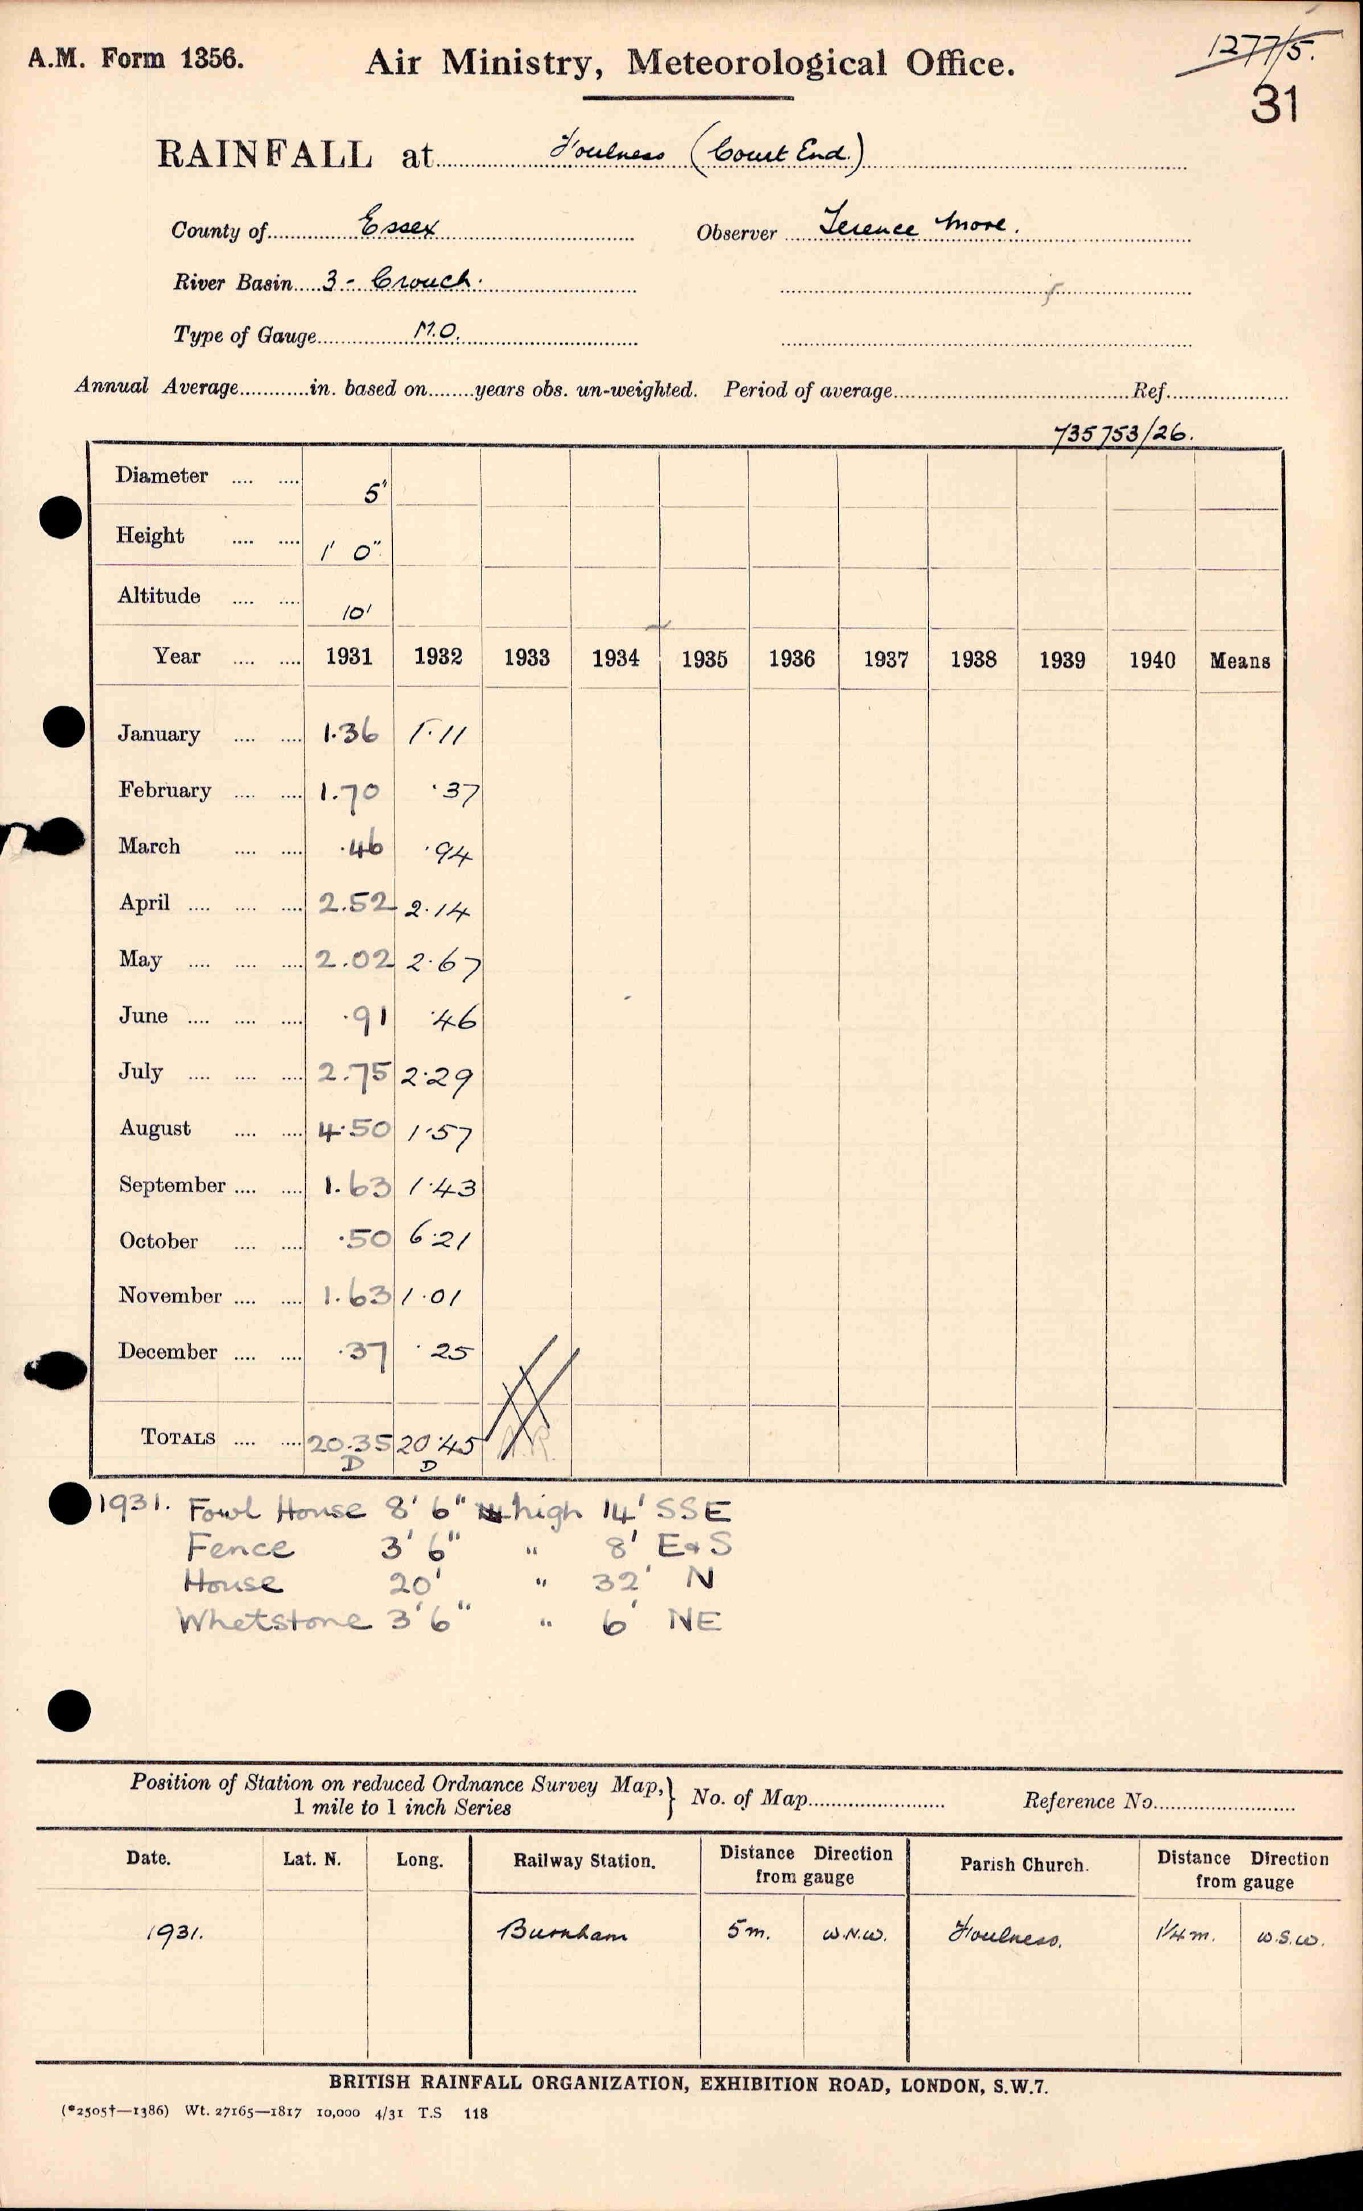 A.M. Form 1356.
Air Ministry, Meteorological Office.
1277/5.
31
RAINFALL at Foulness (Court End.)
County of Essex Observer Terence More.
River Basin 3 - Crouch.
Type of Gauge M.O.
Annual Average............in. based on........years obs. un-weighted. Period of average............Ref............
735753/26.
Diameter .... .... 5"
Height .... .... 1' 0"
Altitude .... .... 10'
Year .... .... 1931 1932 1933 1934 1935 1936 1937 1938 1939 1940 Means
January .... .... 1.36 1.11
February .... .... 1.70 .37
March .... .... .46 .94
April .... .... .... 2.52 2.14
May .... .... .... 2.02 2.67
June .... .... .... .91 .46
July .... .... .... 2.75 2.29
August .... .... 4.50 1.57
September .... .... 1.63 1.43
October .... .... .50 6.21
November .... .... 1.63 1.01
December .... .... .37 .25
TOTALS .... .... 20.35 20.45
D D
1931. Fowl House 8' 6" high 14' SSE
Fence 3' 6" " 8' E & S
House 20' " 32' N
Whetstone 3' 6" " 6' NE
Position of Station on reduced Ordnance Survey Map,
1 mile to 1 inch Series } No. of Map............ Reference No............
Date. Lat. N. Long. Railway Station. Distance Direction from gauge Parish Church. Distance Direction from gauge
1931. Burnham 5 m. W.N.W. Foulness. 1/4 m. W.S.W.
BRITISH RAINFALL ORGANIZATION, EXHIBITION ROAD, LONDON, S.W.7.
(*2505†—1386) Wt. 27165—1817 10,000 4/31 T.S 118